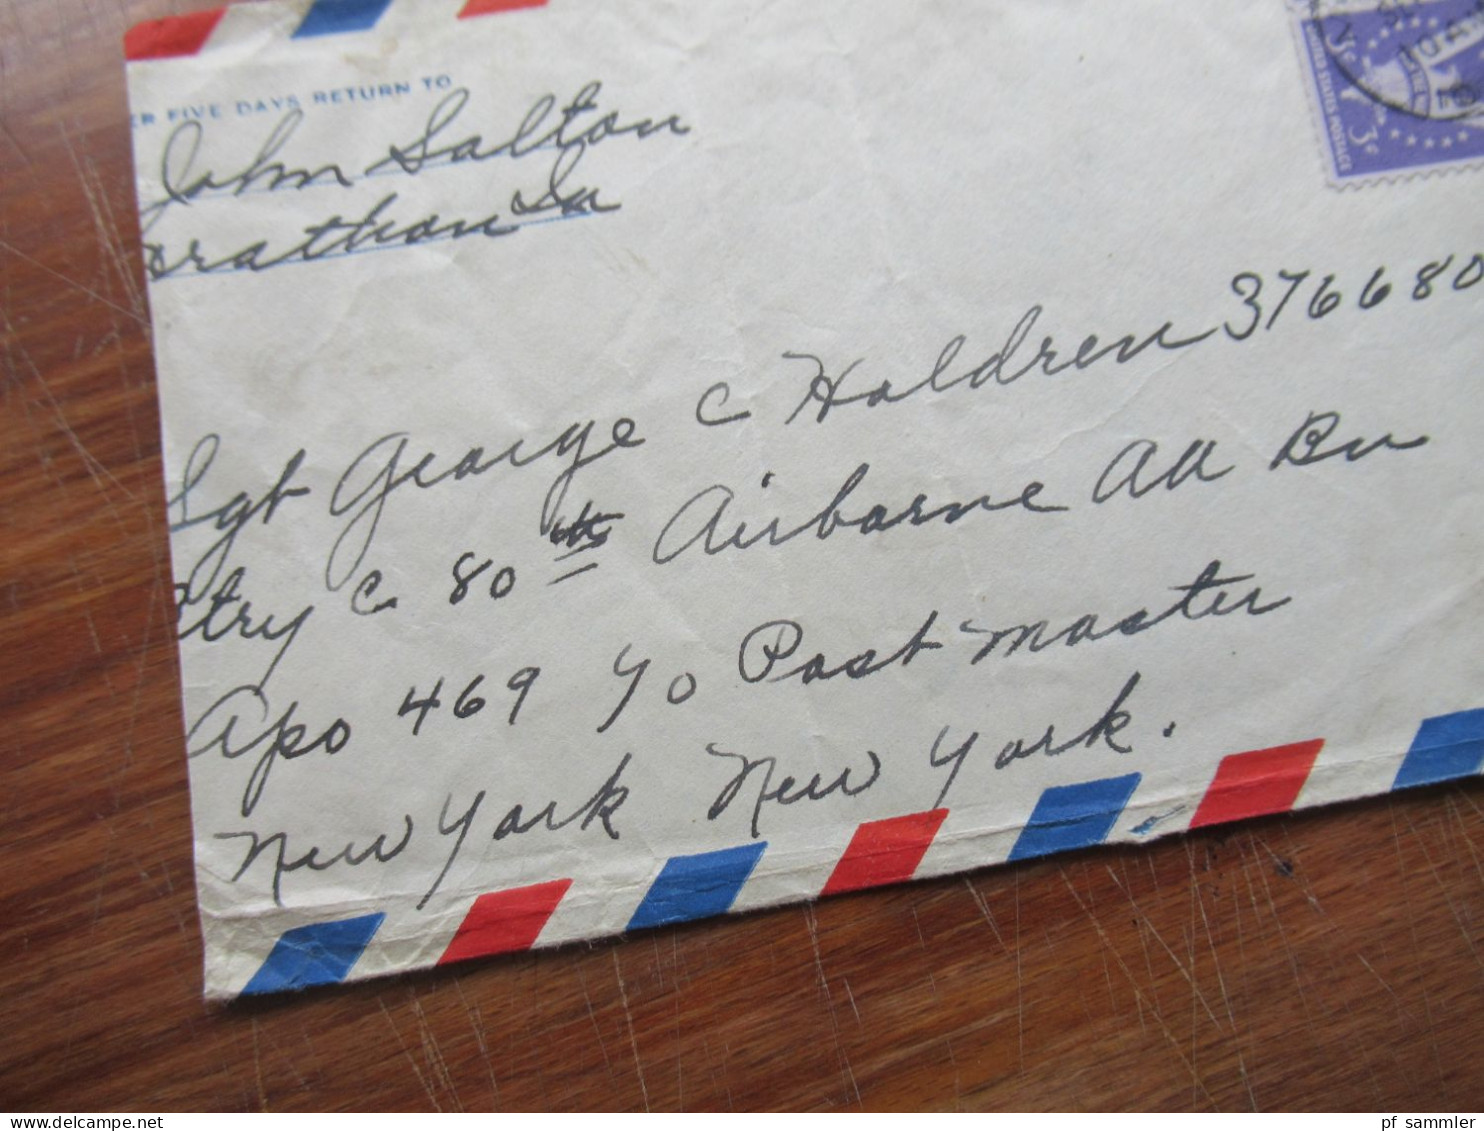 ER FIVE DAYS RETURN TO
John Salton
arathon Ia
3¢
UNITED STATES POSTAGE
3¢
10 AM
Sgt George C Holdren 376680
Btry C 80th Airborne AA Bn
Apo 469 % Post Master
New York New York.
pf_sammler